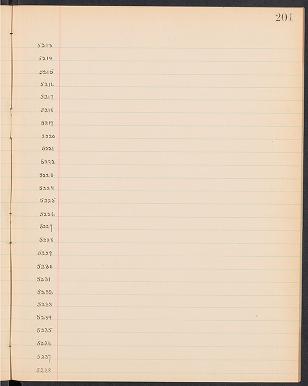 201
5213
5214
5215
5216
5217
5218
5219
5220
5221
5222
5223
5224
5225
5226
5227
5228
5229
5230
5231
5232
5233
5234
5235
5236
5237
5238